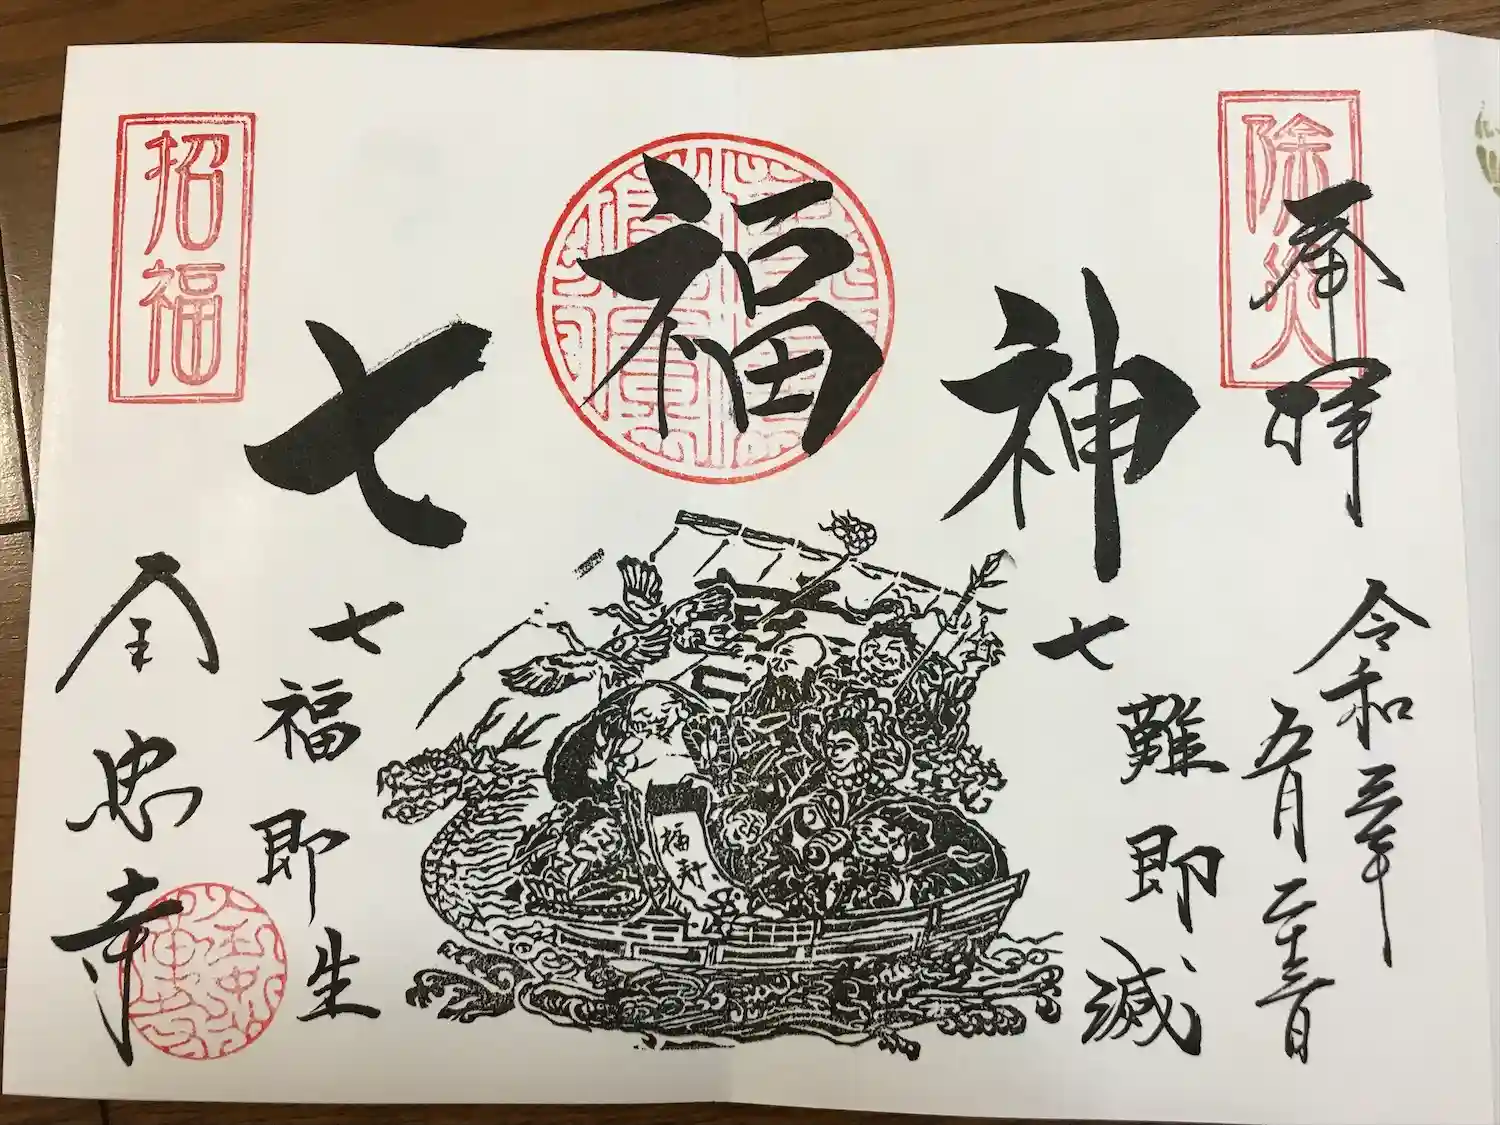 奉拝
除災
令和三年
五月二十三日
七難即滅
神
福
七
福寿
七福即生
招福
全忠寺